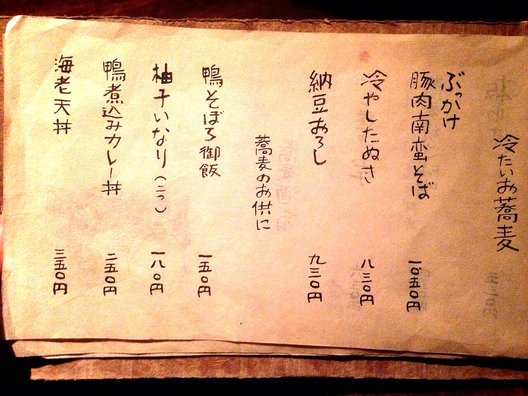 冷たいお蕎麦
ぶっかけ
豚肉南蛮そば 一〇五〇円
冷やしたぬき 八三〇円
納豆おろし 九三〇円
蕎麦のお供に
鴨そぼろ御飯 一五〇円
柚子いなり(二つ) 一八〇円
鴨煮込みカレー丼 二五〇円
海老天丼 三五〇円